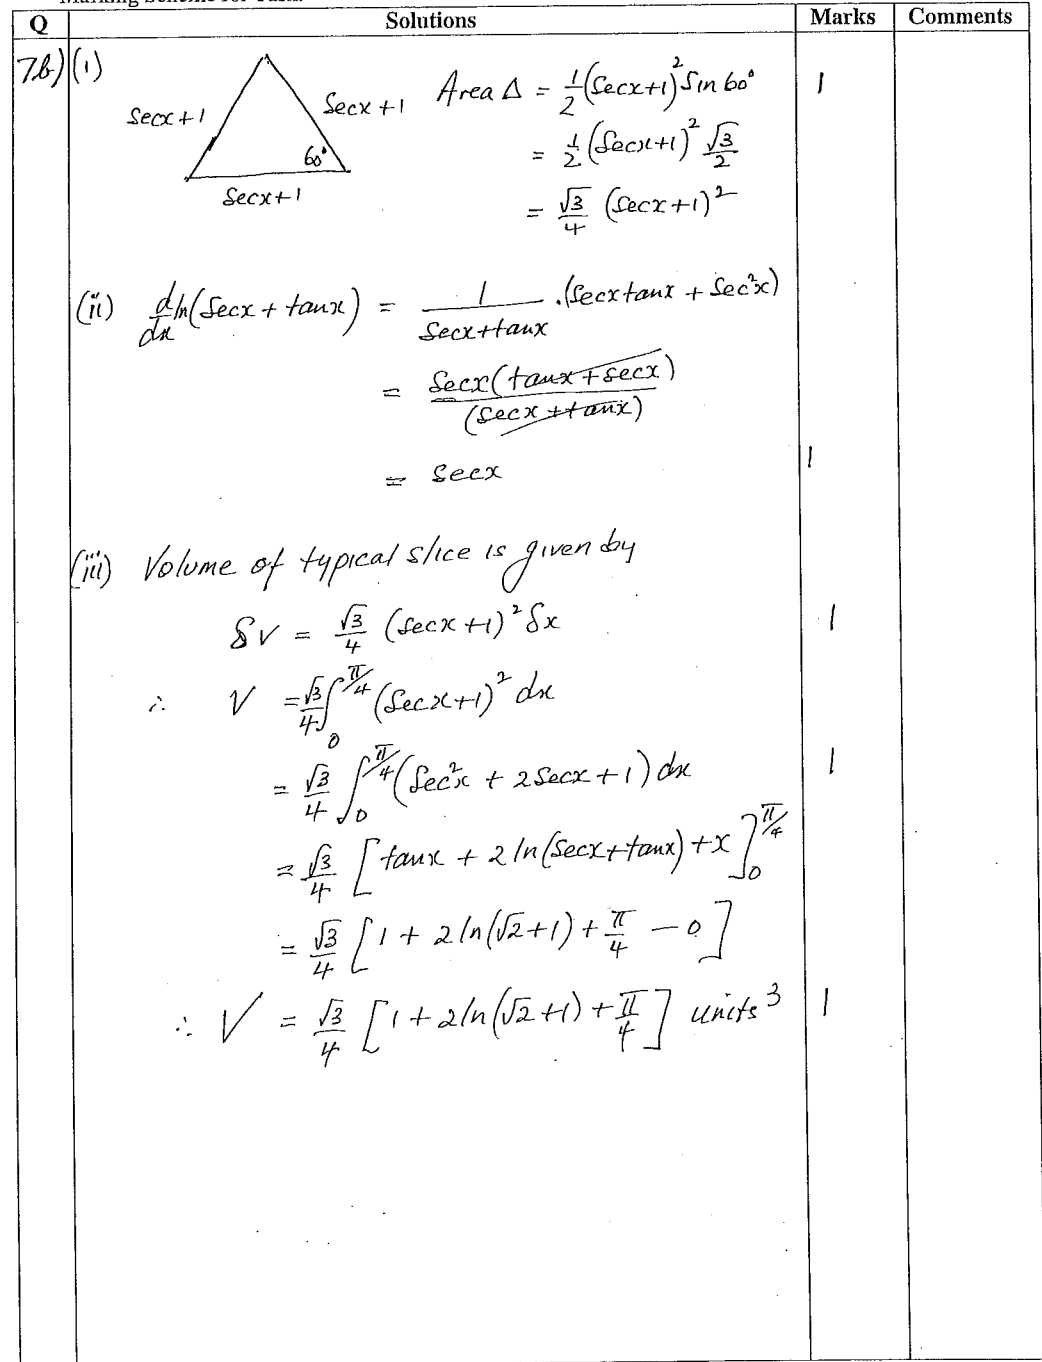 Q Solutions Marks Comments
7b) (i)
Secx+1 Secx+1 60° Secx+1
Area Δ = 1/2 (Secx+1)² Sin 60° 1
= 1/2 (Secx+1)² √3/2
= √3/4 (Secx+1)²
(ii) d/dx ln(Secx + tanx) = 1/(Secx+tanx) .(Secxtanx + Sec²x)
= Secx(tanx+secx)/(Secx+tanx)
= Secx 1
(iii) Volume of typical slice is given by
δV = √3/4 (Secx+1)² δx 1
∴ V = √3/4 ∫₀^(π/4) (Secx+1)² dx
= √3/4 ∫₀^(π/4) (Sec²x + 2Secx+1) dx 1
= √3/4 [tanx + 2ln(Secx+tanx)+x]₀^(π/4)
= √3/4 [1 + 2ln(√2+1) + π/4 - 0]
∴ V = √3/4 [1+2ln(√2+1)+π/4] units³ 1